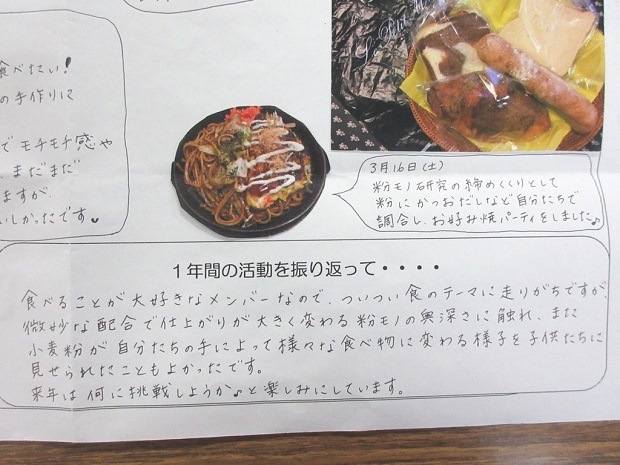 食べたい!
の手作りに
で モチモチ感や
まだまだ
ますが、
いしかったです
Le Petit
3月16日(土)
粉モノ研究の締めくくりとして
粉にかつおだしなど自分たちで
調合し、お好み焼パーティをしました♪
1年間の活動を振り返って・・・・
食べることが大好きなメンバーなので、ついつい食のテーマに走りがちですが、
微妙な配合で仕上がりが大きく変わる粉モノの興深さに触れ、また
小麦粉が自分たちの手によって様々な食べ物に変わる様子を子供たちに
見せられたこともよかったです。
来年は何に挑戦しようか♪と楽しみにしています。